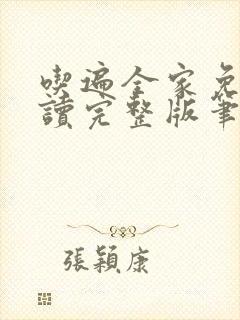 喫遍全家免
讀完整版筆
張穎康